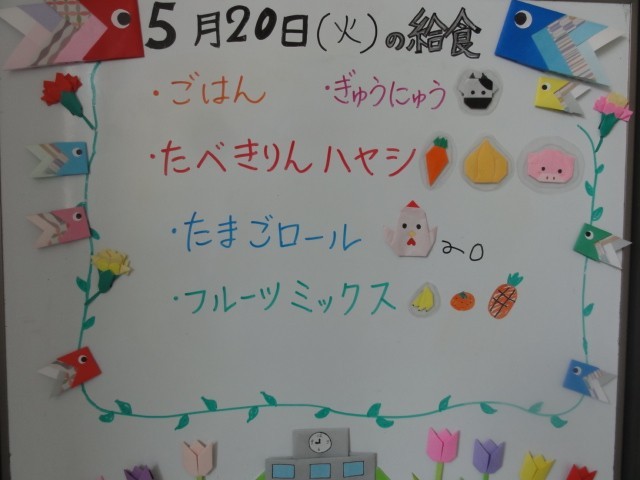 5月20日(火)の給食
・ごはん ・ぎゅうにゅう
・たべきりんハヤシ
・たまごロール
・フルーツミックス